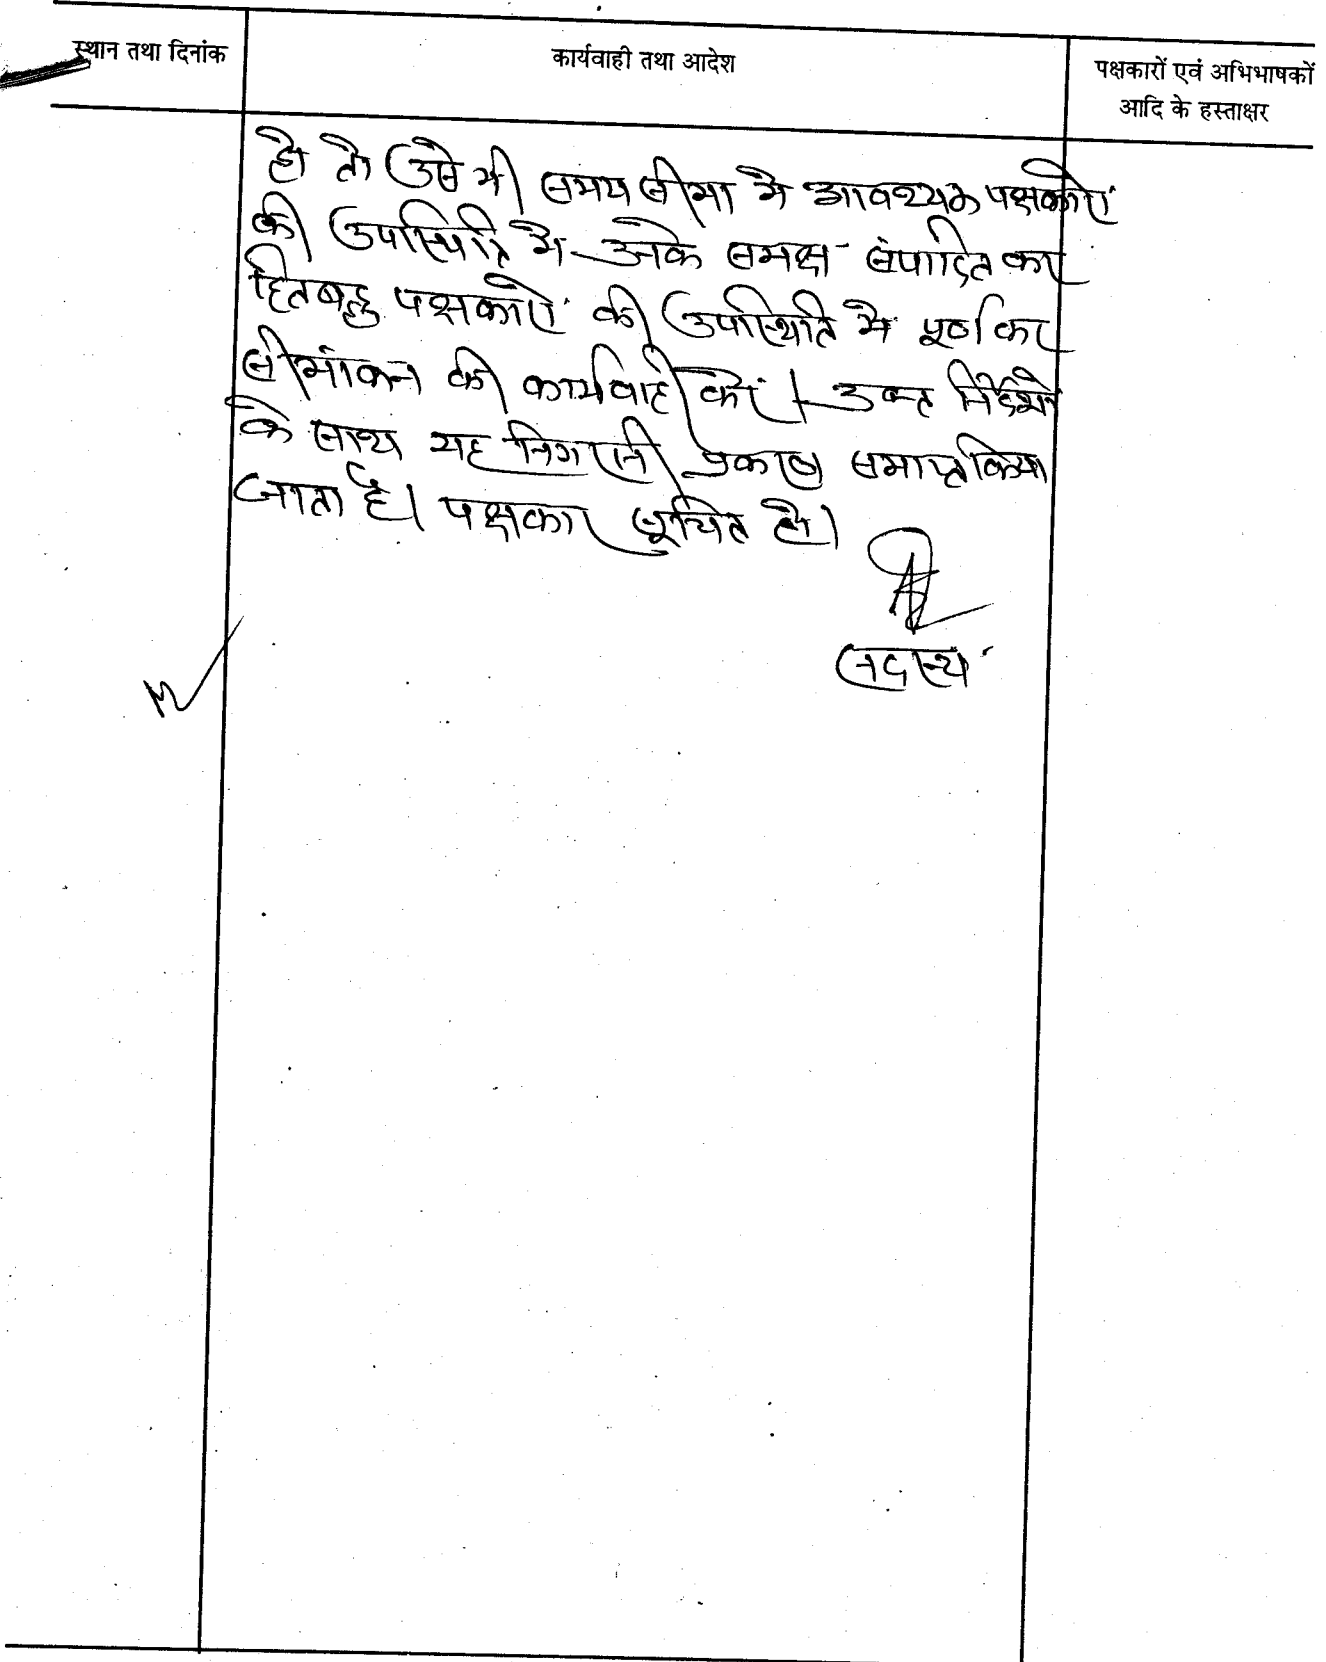 स्थान तथा दिनांक
कार्यवाही तथा आदेश
पक्षकारों एवं अभिभाषकों
आदि के हस्ताक्षर
हो तो उसे भी समय सीमा मे आवश्यक पक्षकारों
की उपस्थिति मे उनके समक्ष संपादित कर
हितबद्ध पक्षकारों की उपस्थिति मे पूर्ण कर
सीमांकन की कार्यवाही करें। उक्त निर्देशो
के साथ यह निगरानी प्रकरण समाप्त किया
जाता है। पक्षकार सूचित हो।
सदस्य